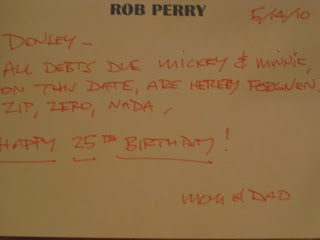 ROB PERRY
5/14/10
DENLEY -
ALL DEBTS DUE MICKEY & MINNIE,
ON THIS DATE, ARE HEREBY FORGIVEN,
ZIP, ZERO, NADA,
HAPPY 25TH BIRTHDAY!
MOM & DAD